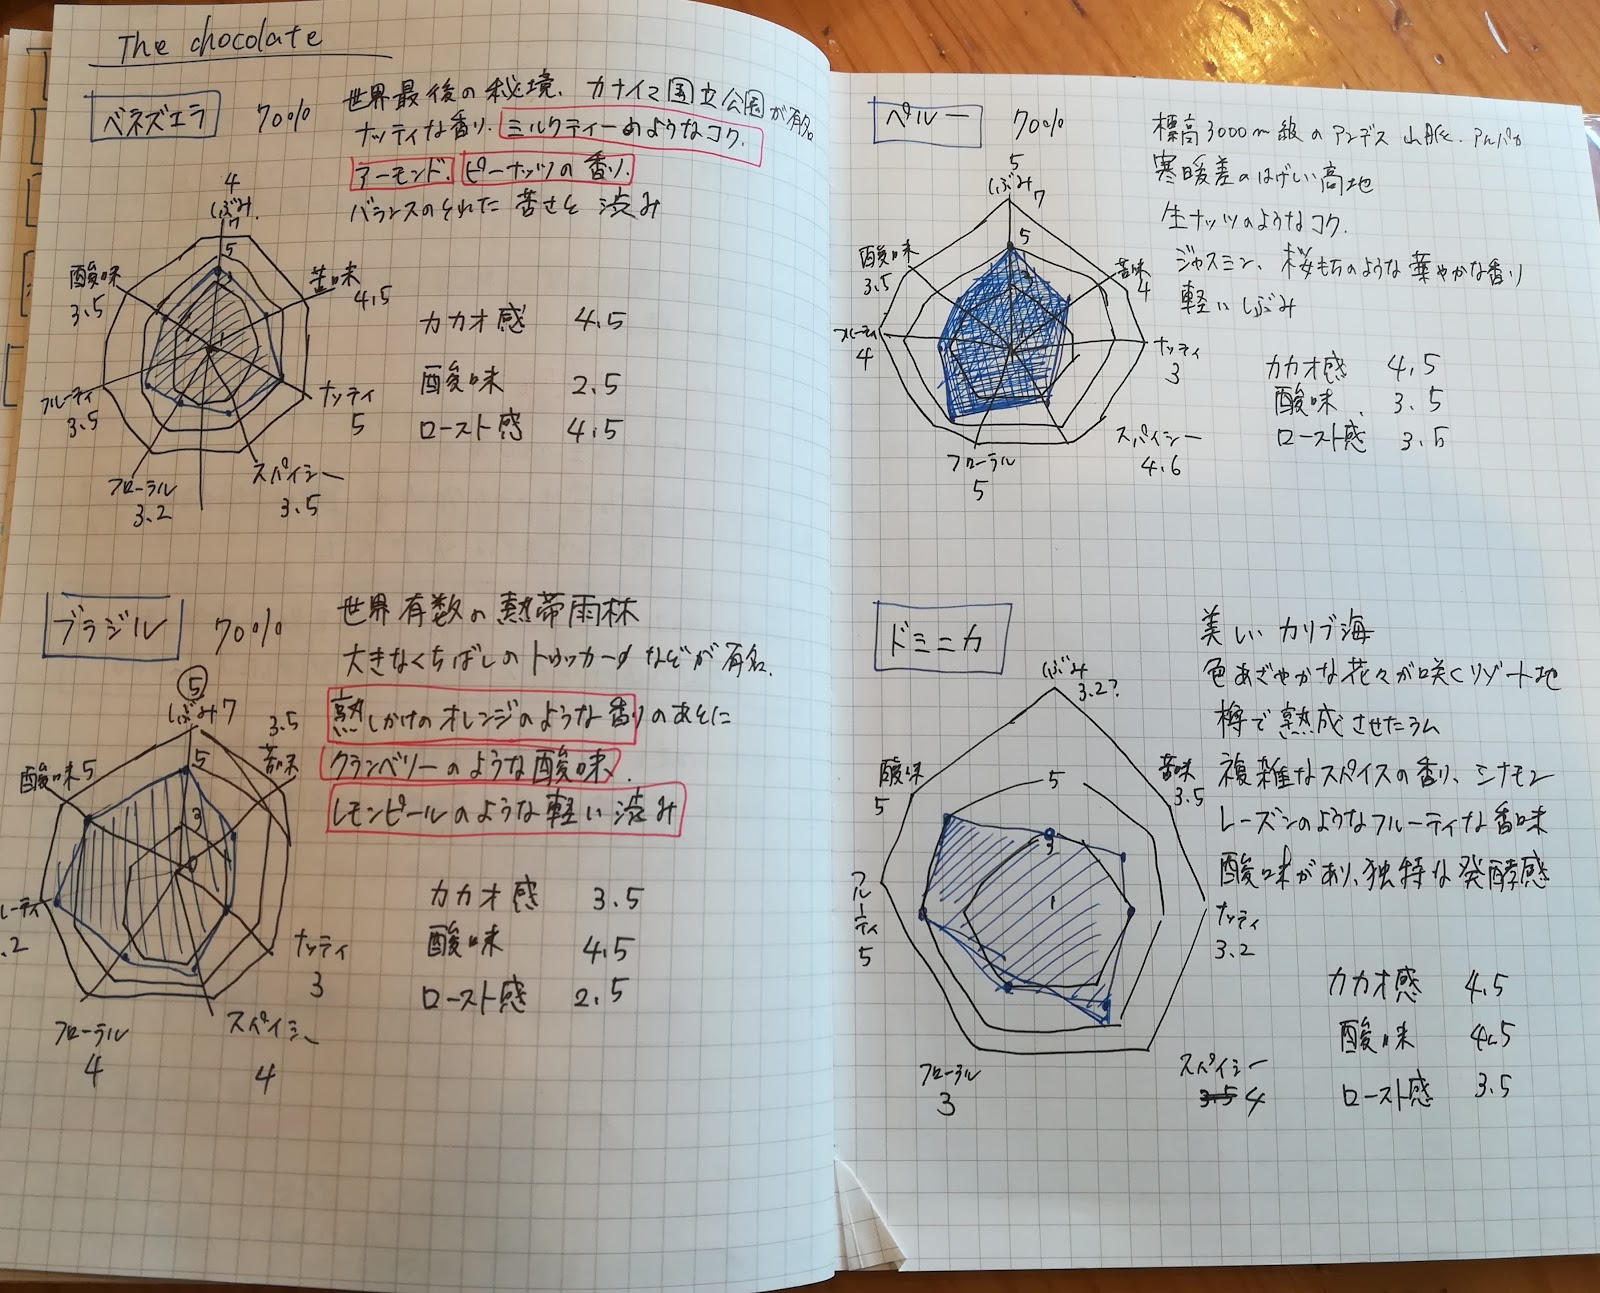 The chocolate
ベネズエラ 70%
世界最後の秘境、カナイマ国立公園が有名。
ナッティな香り、ミルクティーのようなコク、
アーモンド、ピーナッツの香り、
バランスのとれた苦さと渋み
4
しぶみ
7
5
3
1
酸味
3.5
苦味
4.5
フルーティ
3.5
ナッティ
5
フローラル
3.2
スパイシー
3.5
カカオ感 4.5
酸味 2.5
ロースト感 4.5
ブラジル 70%
世界有数の熱帯雨林
大きなくちばしのトゥッカーノなどが有名、
熟しかけのオレンジのような香りのあとに
クランベリーのような酸味、
レモンピールのような軽い渋み
5
しぶみ 7
5
3
酸味 5
3.5
苦味
ルーティ
.2
ナッティ
3
フローラル
4
スパイシー
4
カカオ感 3.5
酸味 4.5
ロースト感 2.5
ペルー 70%
標高3000m級のアンデス山脈、アルパカ
寒暖差のはげしい高地
生ナッツのようなコク、
ジャスミン、桜もちのような華やかな香り
軽いしぶみ
5
しぶみ
7
5
3
酸味
3.5
苦味
4
フルーティ
4
ナッティ
3
フローラル
5
スパイシー
4.6
カカオ感 4.5
酸味 3.5
ロースト感 3.5
ドミニカ
美しいカリブ海
色あざやかな花々が咲くリゾート地
樽で熟成させたラム
複雑なスパイスの香り、シナモン
レーズンのようなフルーティな香味
酸味があり、独特な発酵感
しぶみ
3.2?
5
3
1
酸味
5
苦味
3.5
フルーティ
5
ナッティ
3.2
フローラル
3
スパイシー
3.5 4
カカオ感 4.5
酸味 4.5
ロースト感 3.5